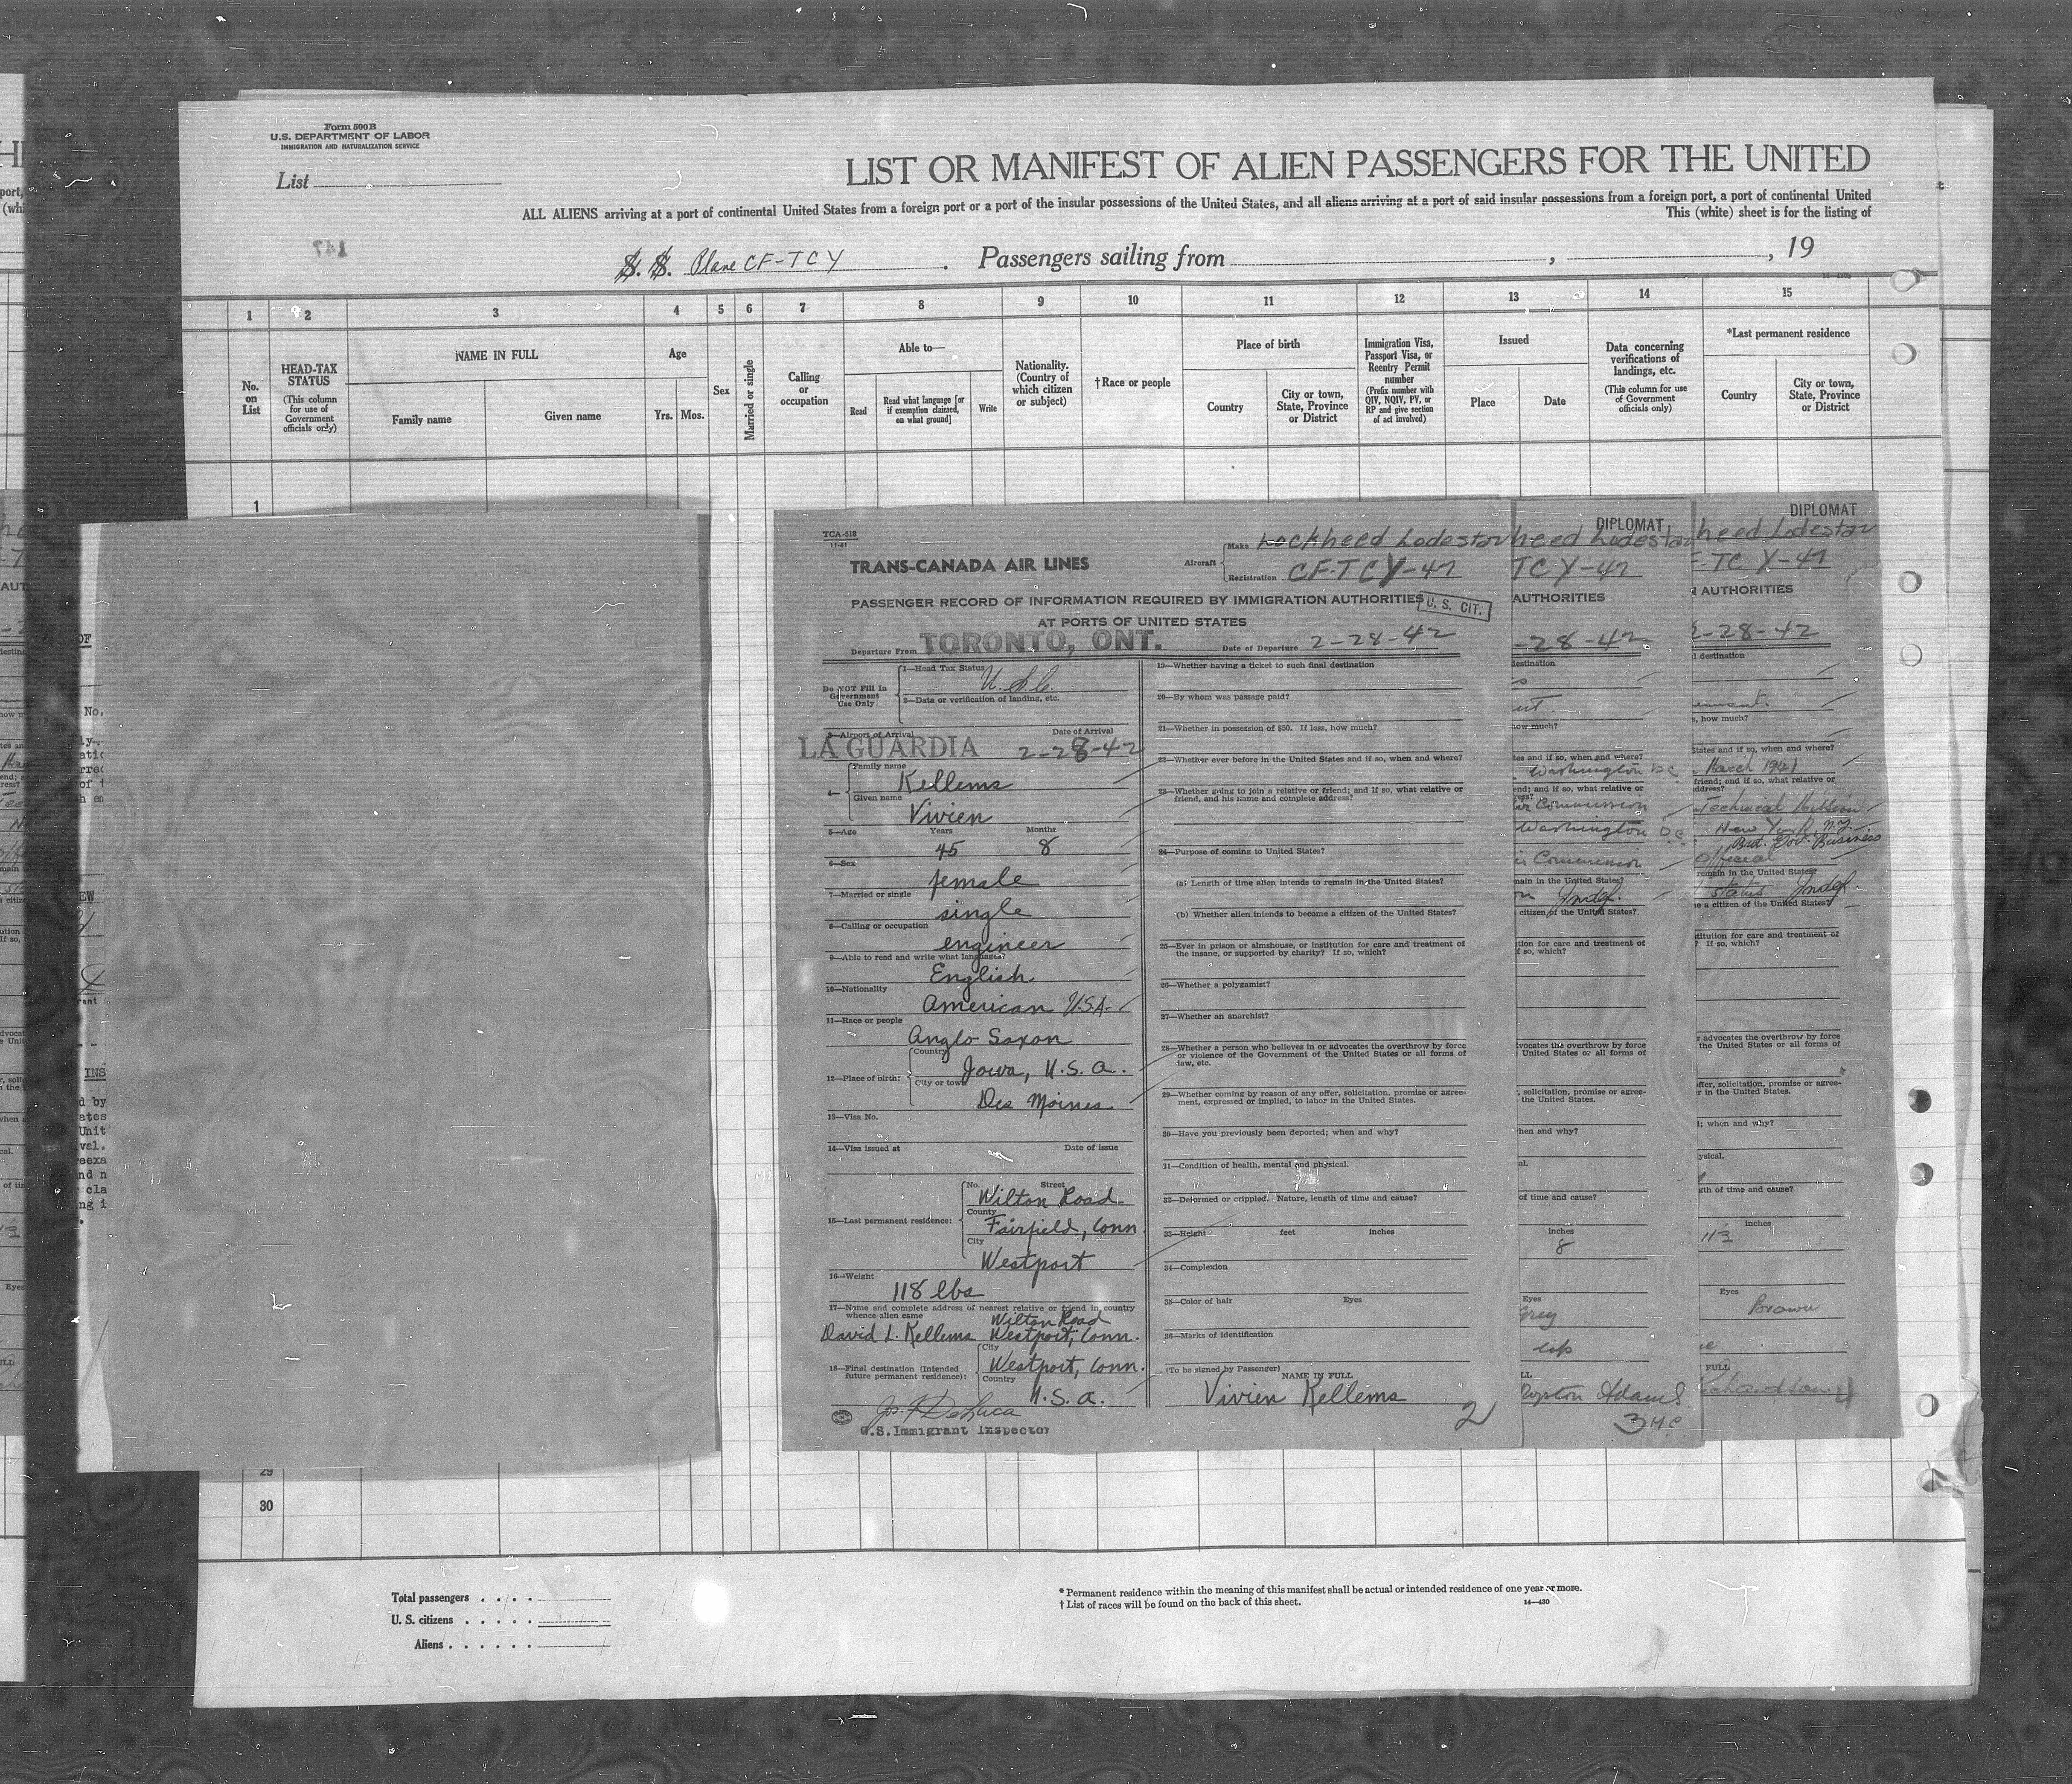 Form 500 B
U.S. DEPARTMENT OF LABOR
IMMIGRATION AND NATURALIZATION SERVICE
List
LIST OR MANIFEST OF ALIEN PASSENGERS FOR THE UNITED
ALL ALIENS arriving at a port of continental United States from a foreign port or a port of the insular possessions of the United States, and all aliens arriving at a port of said insular possessions from a foreign port, a port of continental United
This (white) sheet is for the listing of
147
S. S. Plane CF-TCY. Passengers sailing from , , 19
1 2 3 4 5 6 7 8 9 10 11 12 13 14 15
No. on List
HEAD-TAX STATUS
(This column for use of Government officials only)
NAME IN FULL
Family name
Given name
Age
Yrs. Mos.
Sex
Married or single
Calling or occupation
Able to—
Read
Read what language [or if exemption claimed, on what ground]
Write
Nationality. (Country of which citizen or subject)
†Race or people
Place of birth
Country
City or town, State, Province or District
Immigration Visa, Passport Visa, or Reentry Permit number
(Prefix number with QIV, NQIV, PV, or RP and give section of act involved)
Issued
Place
Date
Data concerning verifications of landings, etc.
(This column for use of Government officials only)
*Last permanent residence
Country
City or town, State, Province or District
1
TCA-518
11-41
TRANS-CANADA AIR LINES
Aircraft
Make Lockheed Lodestar
Registration CF-TCY-47
PASSENGER RECORD OF INFORMATION REQUIRED BY IMMIGRATION AUTHORITIES
U. S. CIT.
AT PORTS OF UNITED STATES
Departure From TORONTO, ONT. Date of Departure 2-28-42
Do NOT Fill In Government Use Only
1—Head Tax Status
2—Data or verification of landing, etc.
3—Airport of Arrival Date of Arrival
LA GUARDIA 2-28-42
4—
Family name
Kellems
Given name
Vivien
5—Age Years Months
45 8
6—Sex
female
7—Married or single
single
8—Calling or occupation
engineer
9—Able to read and write what language?
English
10—Nationality
American U.S.A.
11—Race or people
Anglo Saxon
12—Place of birth:
Country
Iowa, U.S.A.
City or town
Des Moines
13—Visa No.
14—Visa issued at Date of issue
15—Last permanent residence:
No. Street
Wilton Road
County
Fairfield, Conn
City
Westport
16—Weight
118 lbs
17—Name and complete address of nearest relative or friend in country
whence alien came
Wilton Road
David L. Kellems Westport, Conn.
18—Final destination (Intended future permanent residence):
City
Westport, Conn.
Country
U.S.A.
U.S. Immigrant Inspector
19—Whether having a ticket to such final destination
20—By whom was passage paid?
21—Whether in possession of $50. If less, how much?
22—Whether ever before in the United States and if so, when and where?
23—Whether going to join a relative or friend; and if so, what relative or
friend, and his name and complete address?
24—Purpose of coming to United States?
(a) Length of time alien intends to remain in the United States?
(b) Whether alien intends to become a citizen of the United States?
25—Ever in prison or almshouse, or institution for care and treatment of
the insane, or supported by charity? If so, which?
26—Whether a polygamist?
27—Whether an anarchist?
28—Whether a person who believes in or advocates the overthrow by force
or violence of the Government of the United States or all forms of
law, etc.
29—Whether coming by reason of any offer, solicitation, promise or agree-
ment, expressed or implied, to labor in the United States.
30—Have you previously been deported; when and why?
31—Condition of health, mental and physical.
32—Deformed or crippled. Nature, length of time and cause?
33—Height feet inches
34—Complexion
35—Color of hair Eyes
36—Marks of identification
(To be signed by Passenger) NAME IN FULL
Vivien Kellems
2
DIPLOMAT
heed Lodestar
TCY-47
AUTHORITIES
-28-42
destination
how much?
tes and if so, when and where?
Washington DC
end; and if so, what relative or
Air Commission
Washington DC
Commission
main in the United States?
Indef.
citizen of the United States?
tion for care and treatment of
f so, which?
vocates the overthrow by force
the United States or all forms of
solicitation, promise or agree-
the United States.
hen and why?
al.
of time and cause?
inches
8
Eyes
Grey
lip
Adams
3 H.C.
DIPLOMAT
heed Lodestar
F-TCY-47
AUTHORITIES
2-28-42
destination
, how much?
States and if so, when and where?
March 1941
friend; and if so, what relative or
address?
Technical Division
New York, N.Y.
Brit. Gov. Business
Official
remain in the United States?
status Indef.
e a citizen of the United States?
titution for care and treatment of
? If so, which?
r advocates the overthrow by force
the United States or all forms of
offer, solicitation, promise or agree-
r in the United States.
; when and why?
ysical.
gth of time and cause?
inches
11½
Eyes
Brown
FULL
Richardson
4
29
30
Total passengers
U. S. citizens
Aliens
* Permanent residence within the meaning of this manifest shall be actual or intended residence of one year or more.
† List of races will be found on the back of this sheet.
14—430